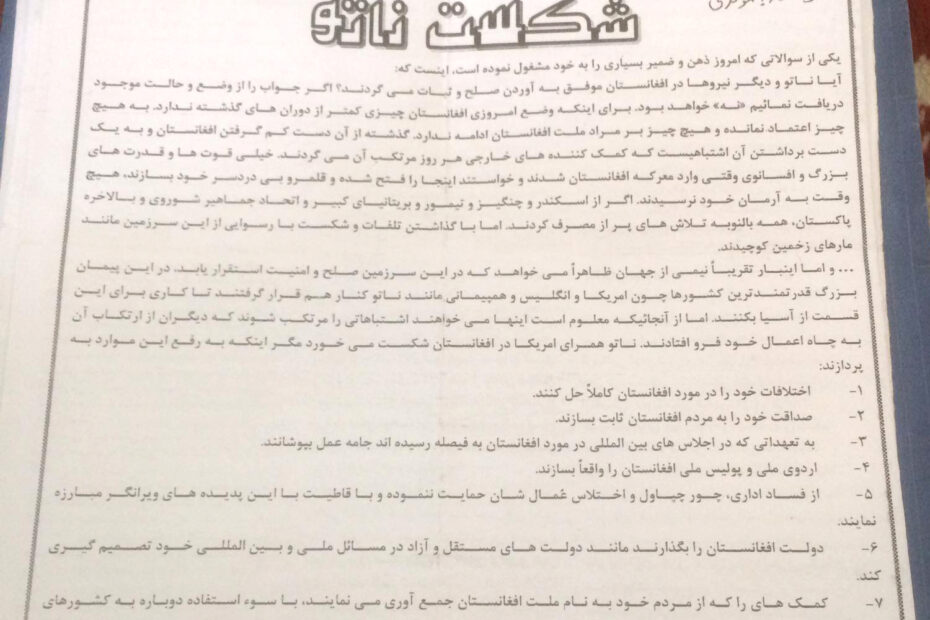 شکست ناتو
یکی از سوالاتی که امروز ذهن و ضمیر بسیاری را به خود مشغول نموده است، اینست که:
آیا ناتو و دیگر نیروها در افغانستان موفق به آوردن صلح و ثبات می گردند؟ اگر جواب را از وضع و حالت موجود
دریافت نمائیم «نه» خواهد بود. برای اینکه وضع امروزی افغانستان چیزی کمتر از دوران های گذشته ندارد. به هیچ
چیز اعتماد نمانده و هیچ چیز بر مراد ملت افغانستان ادامه ندارد. گذشته از آن دست کم گرفتن افغانستان و به یک
دست برداشتن آن اشتباهیست که کمک کننده های خارجی هر روز مرتکب آن می گردند. خیلی قوت ها و قدرت های
بزرگ و افسانوی وقتی وارد معرکه افغانستان شدند و خواستند اینجا را فتح شده و قلمرو بی دردسر خود بسازند، هیچ
وقت به آرمان خود نرسیدند. اگر از اسکندر و چنگیز و تیمور و بریتانیای کبیر و اتحاد جماهیر شوروی و بالاخره
پاکستان، همه بالنوبه تلاش های پر از مصرف کردند. اما با گذاشتن تلفات و شکست با رسوایی از این سرزمین مانند
مارهای زخمین کوچیدند.
... و اما اینبار تقریباً نیمی از جهان ظاهراً می خواهد که در این سرزمین صلح و امنیت استقرار یابد. در این پیمان
بزرگ قدرتمندترین کشورها چون امریکا و انگلیس و همپیمانی مانند ناتو کنار هم قرار گرفتند تا کاری برای این
قسمت از آسیا بکنند. اما از آنجائیکه معلوم است اینها می خواهند اشتباهاتی را مرتکب شوند که دیگران از ارتکاب آن
به چاه اعمال خود فرو افتادند. ناتو همرای امریکا در افغانستان شکست می خورد مگر اینکه به رفع این موارد به
پردازند:
۱- اختلافات خود را در مورد افغانستان کاملاً حل کنند.
۲- صداقت خود را به مردم افغانستان ثابت بسازند.
۳- به تعهداتی که در اجلاس های بین المللی در مورد افغانستان به فیصله رسیده اند جامه عمل بپوشانند.
۴- اردوی ملی و پولیس ملی افغانستان را واقعاً بسازند.
۵- از فساد اداری، چور چپاول و اختلاس عُمال شان حمایت ننموده و با قاطیت با این پدیده های ویرانگر مبارزه
نمایند.
۶- دولت افغانستان را بگذارند مانند دولت های مستقل و آزاد در مسائل ملی و بین المللی خود تصمیم گیری
کند.
۷- کمک های را که از مردم خود به نام ملت افغانستان جمع آوری می نمایند، با سوء استفاده دوباره به کشورهای